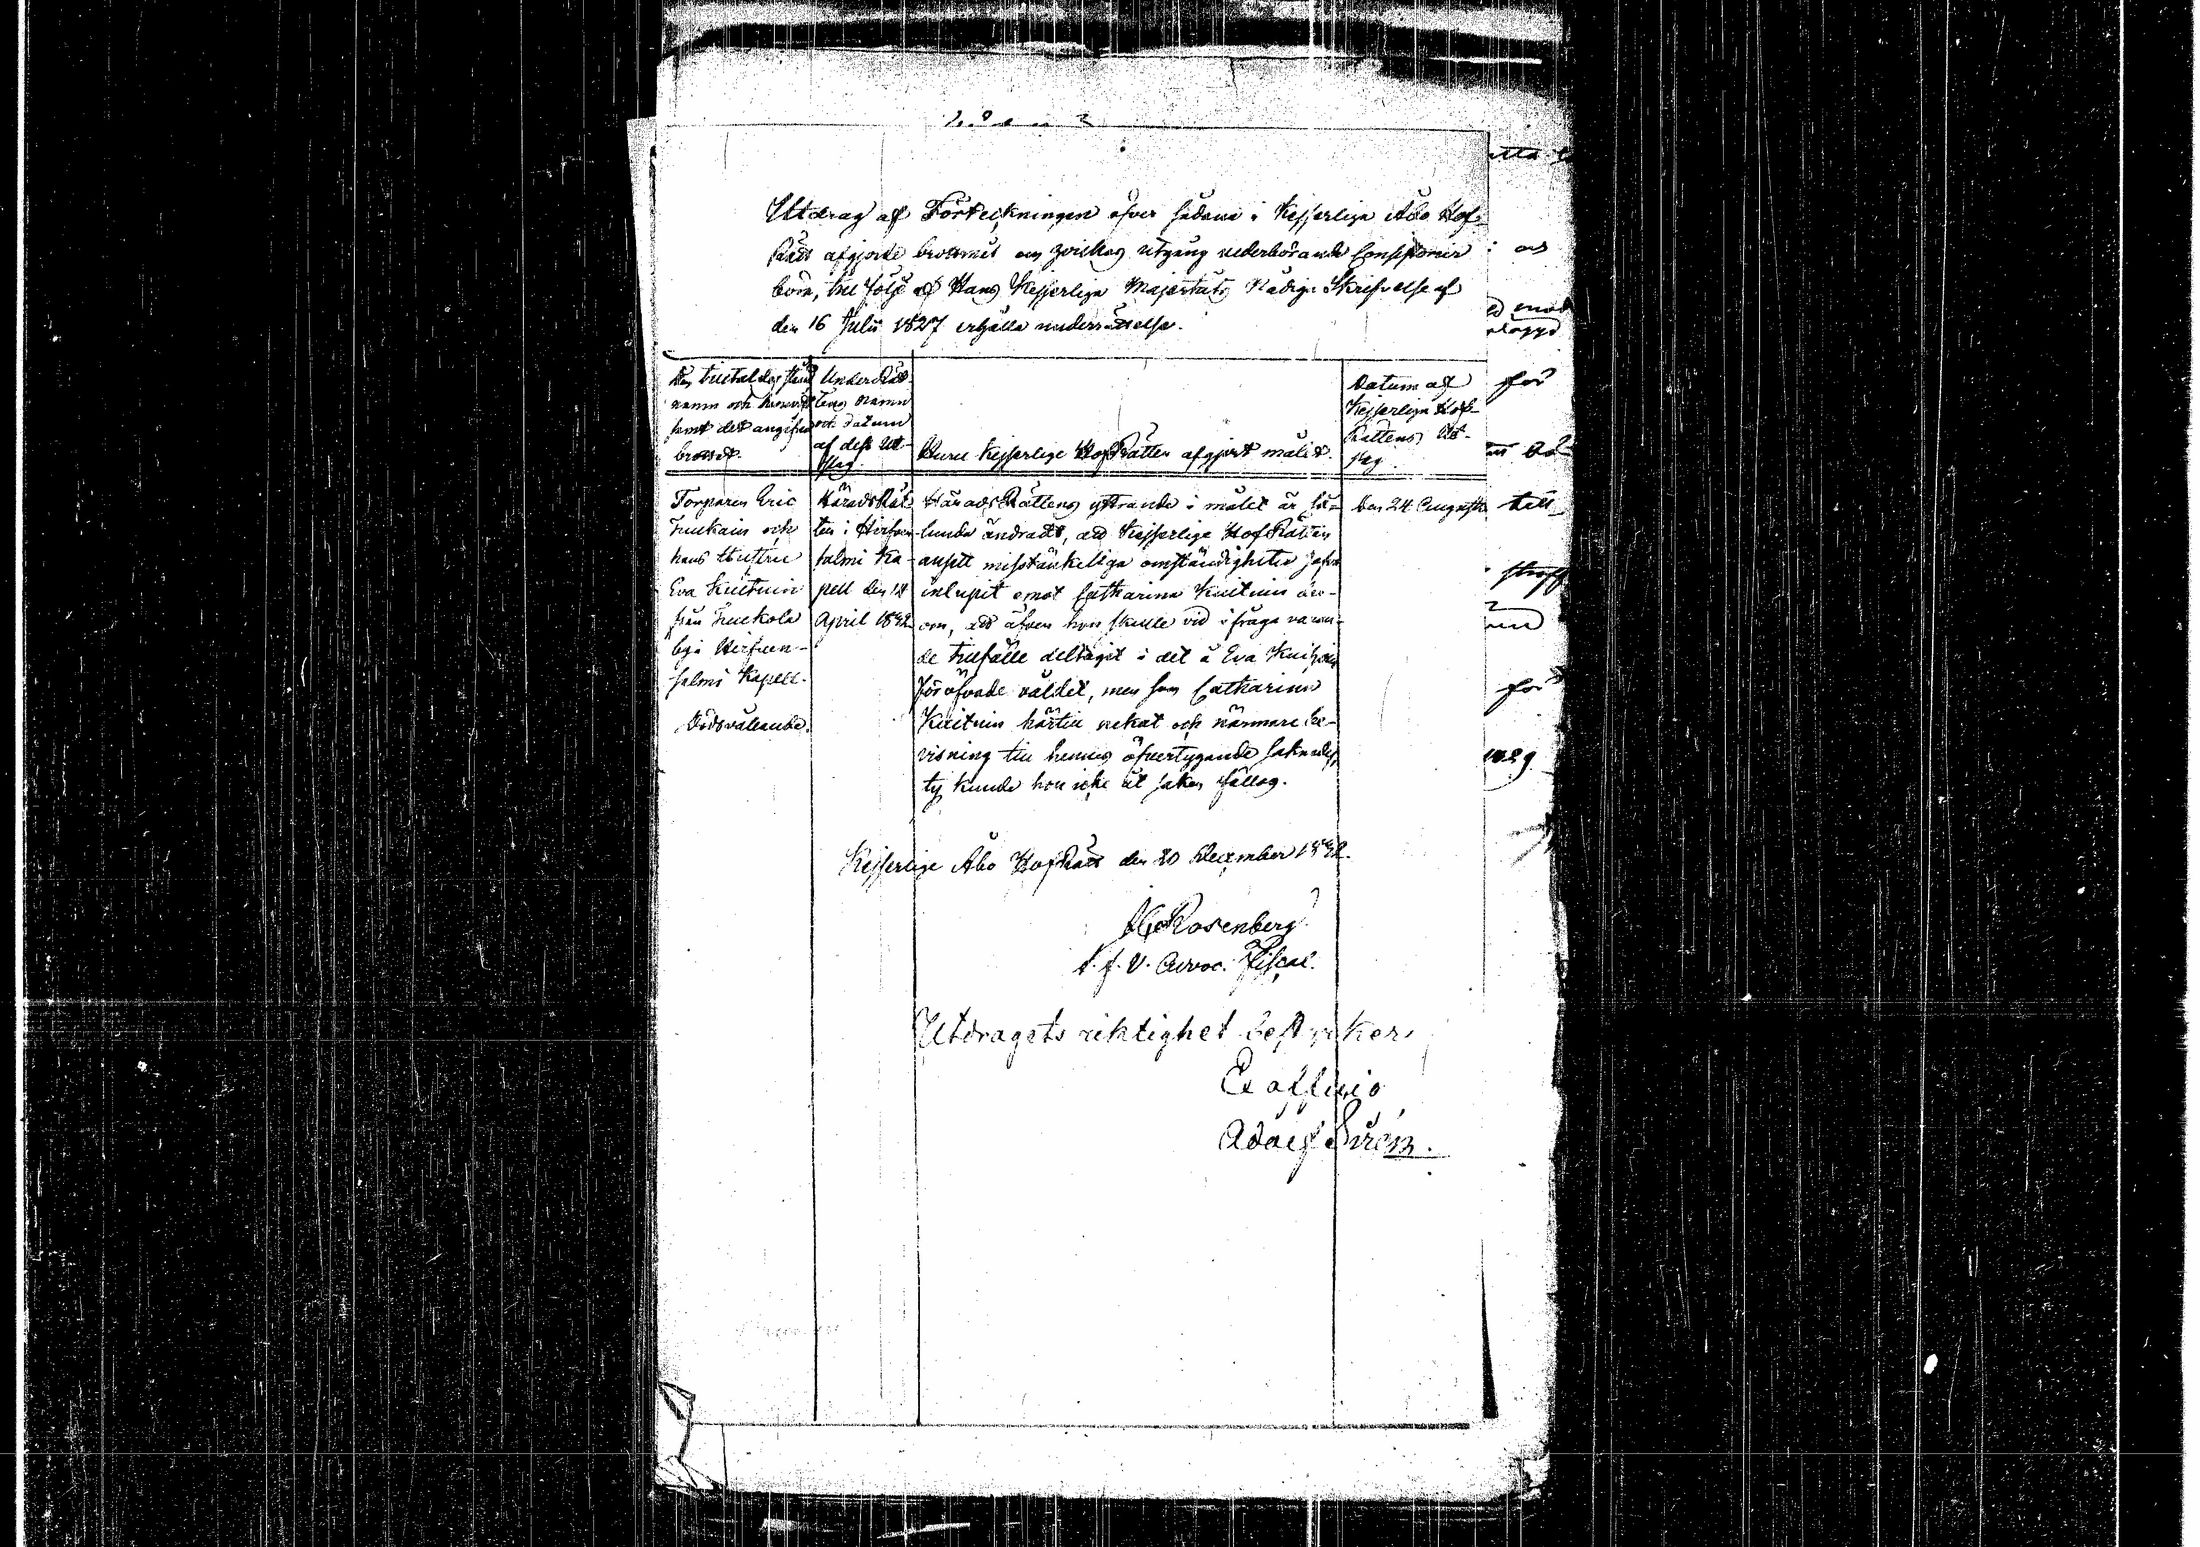 Utdrag af Förteckningen öfver sådane i Kejserliga Åbo Hof-
Rätt afgjorde brottmål om hvilkas utgång vederbörande Consistorier
böra, till följe af Hans Kejserliga Majestäts Nådiga Skrifvelse af
den 16 Julii 1827 erhålla underrättelse.
Den tilltalades
namn och
samt det angifna
brottet.
UnderRät-
tens namn
och datum
af dess Ut-
slag
Huru Kejserliga HofRätten afgjort målet.
Datum af
Kejserliga Hof-
Rättens Ut-
slag.
Torparen Eric
och
hans Hustru
Eva Kuitnin
från
by i Hirfven-
salmi Kapell.
Dödsvållande.
HäradsRät-
ten i Hirfven-
salmi Ka-
pell den 14
April 1832
HäradsRättens yttrande i målet är så-
lunda ändradt, att Kejserliga HofRätten
ansett misstänkeliga omständigheter hafva
inlupit emot Catharina Kuitnin där-
om, att äfven hon skulle vid ifråga varan-
de tillfälle deltagit i det å Eva
föröfvade våldet, men som Catharina
Kuitnin härtill nekat och närmare be-
visning till hennes öfvertygande saknades,
ty kunde hon icke åt saken fällas.
den 24 Augusti
Kejserliga Åbo HofRätt den 20 December 1832.
Rosenberg
t. f. V. Advoc. Fiscal.
Utdragets riktighet bestyrker,
Ex officio
Adolf Sirén.
för
till
för